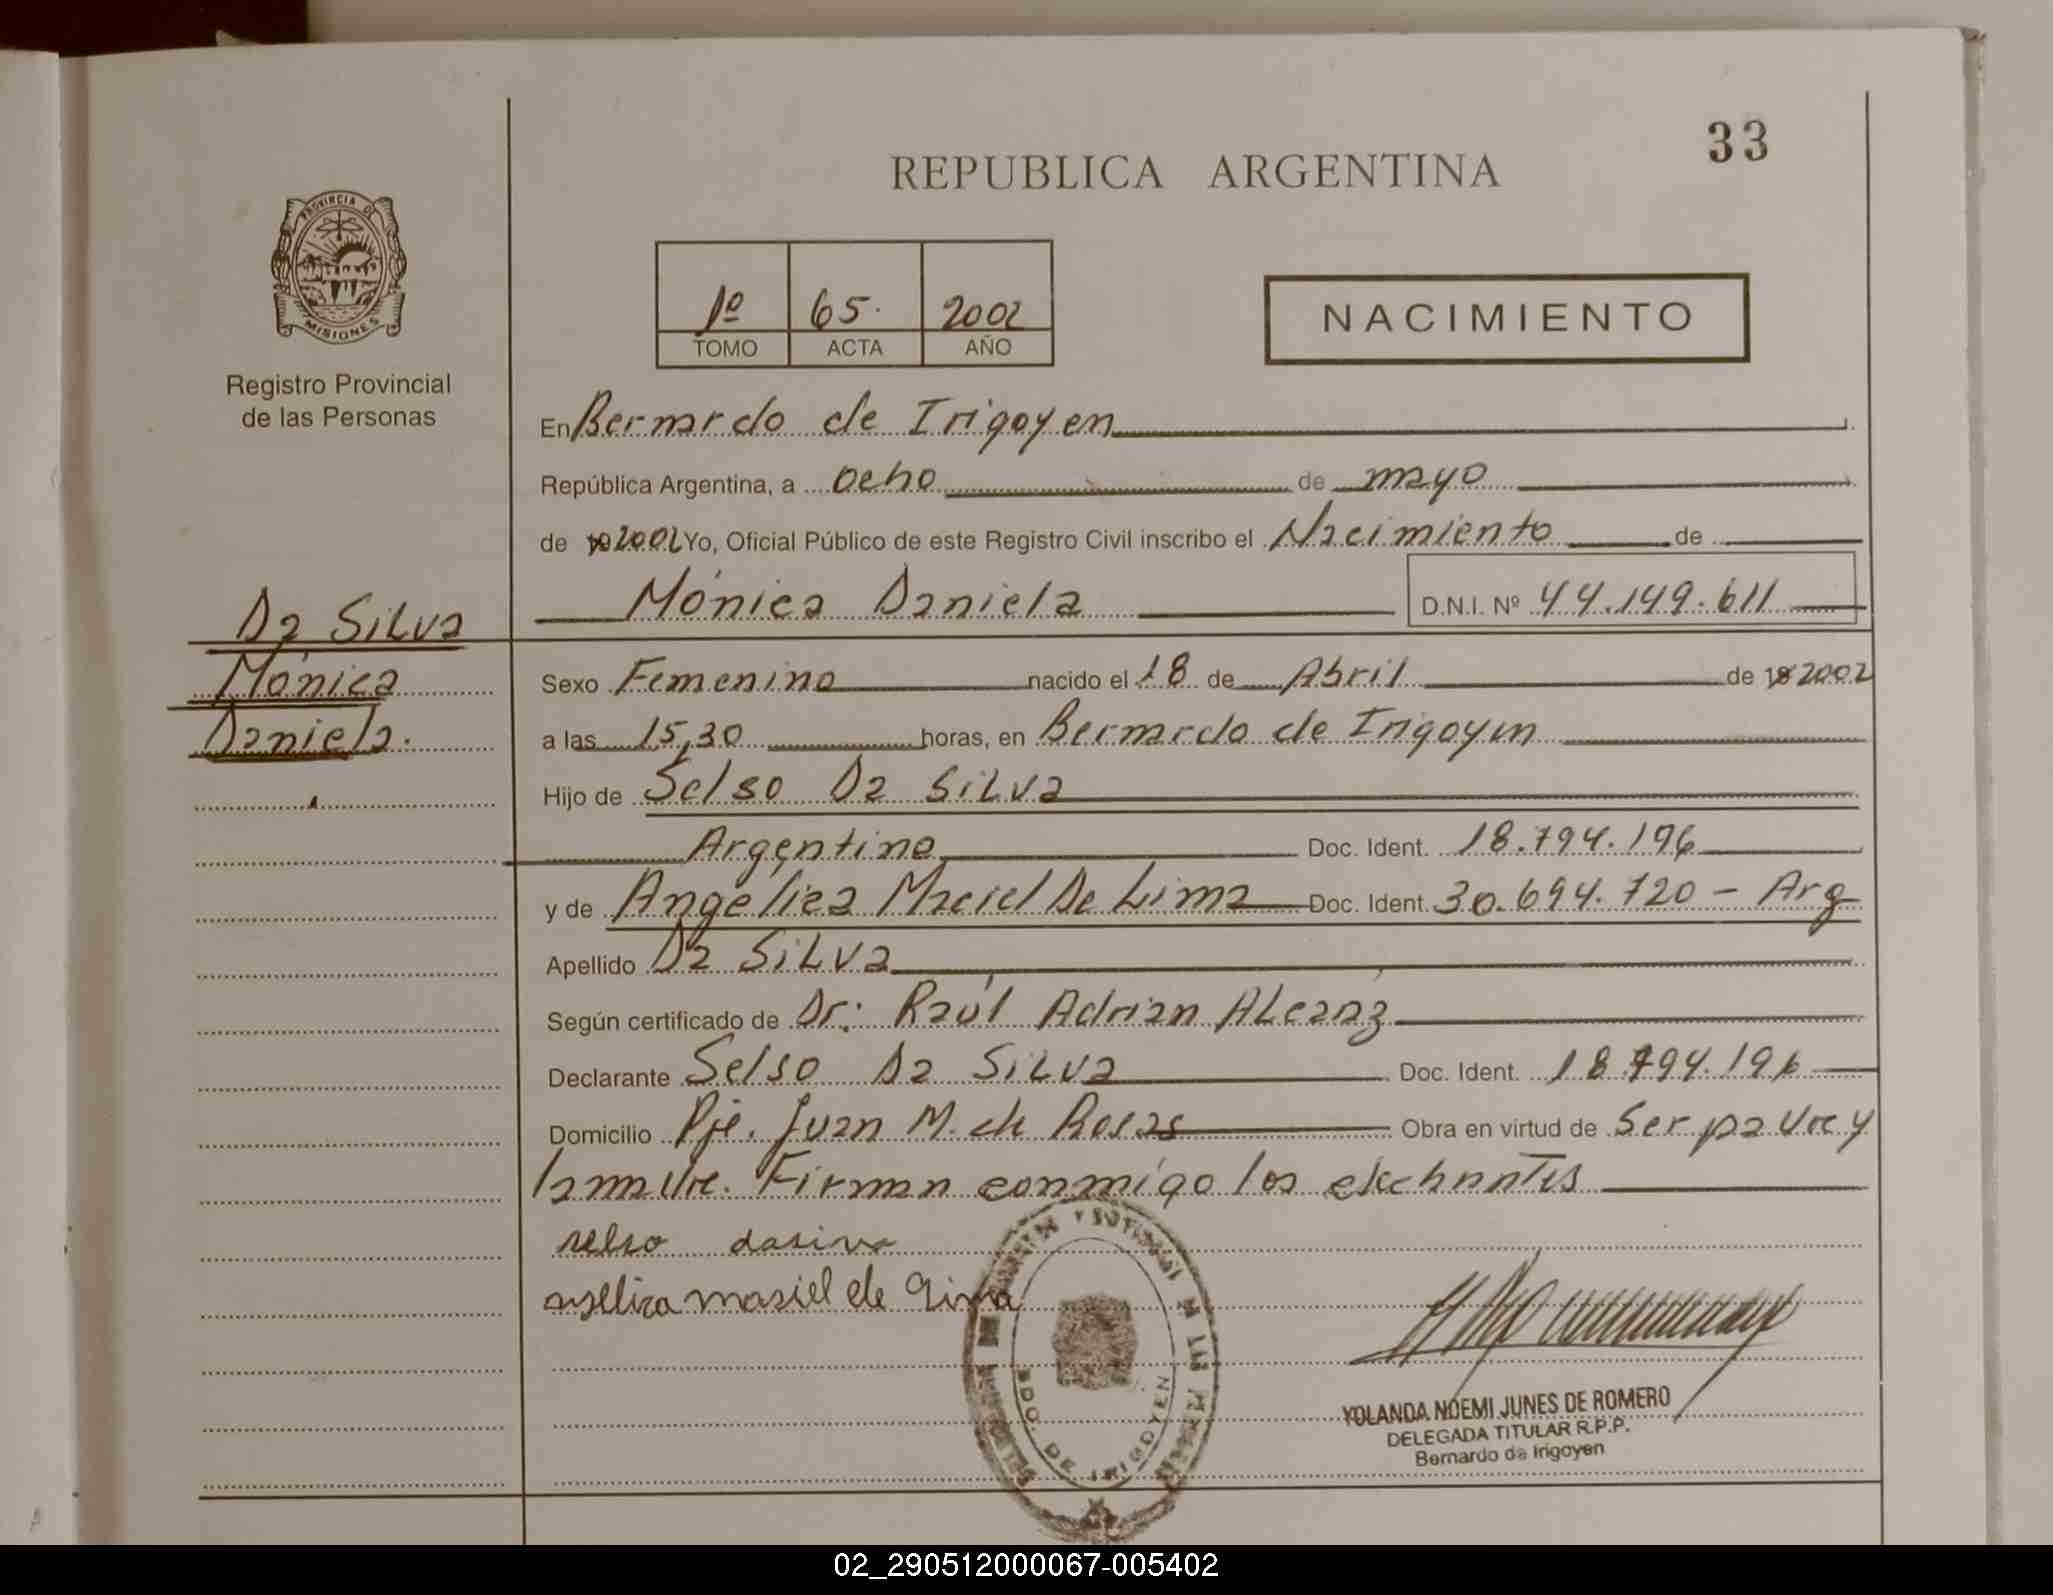 33
REPUBLICA ARGENTINA
PROVINCIA DE
MISIONES
Registro Provincial
de las Personas
1º 65. 2002
TOMO ACTA AÑO
NACIMIENTO
En Bernardo de Irigoyen
República Argentina, a ocho de mayo
de 19 2002 Yo, Oficial Público de este Registro Civil inscribo el Nacimiento de
Mónica Daniela D.N.I. Nº 44.149.611
Da Silva
Mónica
Daniela.
Sexo Femenino nacido el 18 de Abril de 19 2002
a las 15,30 horas, en Bernardo de Irigoyen
Hijo de Selso Da Silva
Argentino Doc. Ident. 18.794.196
y de Angélica Maciel De Lima Doc. Ident. 30.694.720 - Arg
Apellido Da Silva
Según certificado de Dr: Raúl Adrian Alcaraz
Declarante Selso Da Silva Doc. Ident. 18.794.196
Domicilio Pje. Juan M. de Rosas Obra en virtud de Ser padre y
la madre. Firman conmigo los declarantes
selso dasiva
masiel de
BDO. DE IRIGOYEN
YOLANDA NOEMI JUNES DE ROMERO
DELEGADA TITULAR R.P.P.
Bernardo de Irigoyen
02_290512000067-005402